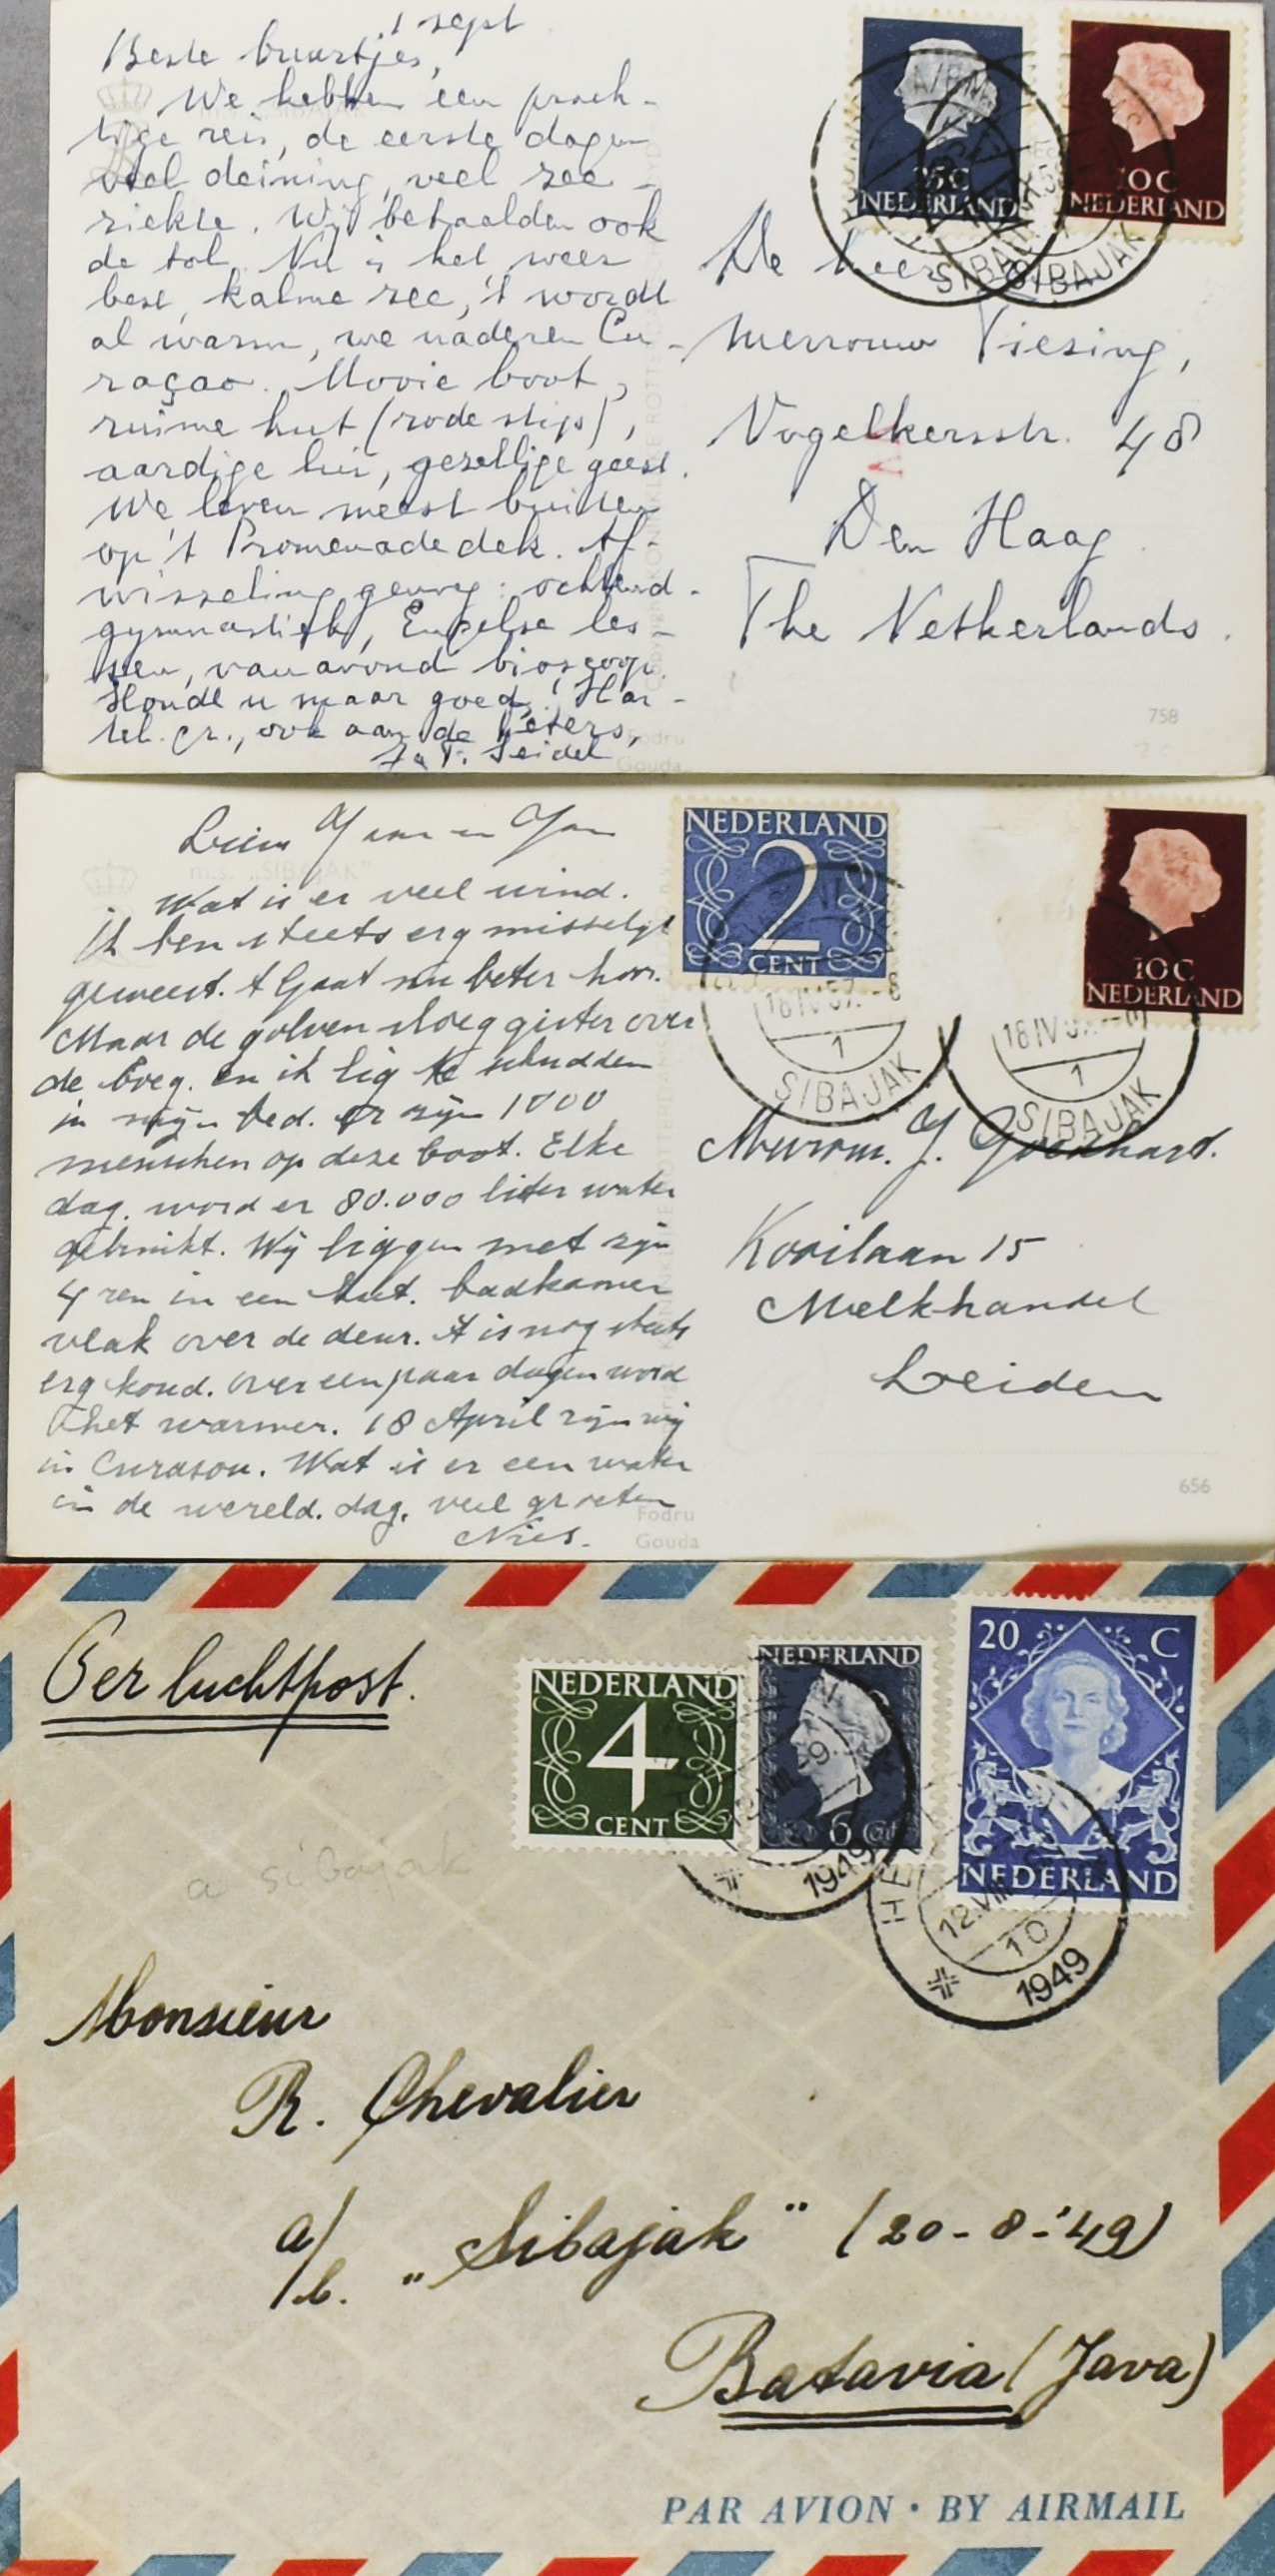 1 sept
Beste buurtjes,
We hebben een prach-
tige reis, de eerste dagen
veel deining, veel zee-
ziekte. Wij betaalden ook
de tol. Nu is het weer
best, kalme zee, 't wordt
al warm, we naderen Cu-
raçao. Mooie boot,
ruime hut (rode stip),
aardige lui, gezellige geest.
We leven meest buiten
op 't Promenadedek. Af-
wisseling genoeg: ochtend-
gymnastiek, Engelse les-
sen, vanavond bioscoop.
Houdt u maar goed! Har-
tel. gr., ook aan de Peters,
Seidel
m.s. „SIBAJAK"
25 C
NEDERLAND
10 C
NEDERLAND
SIBAJAK
SIBAJAK
De heer
Mevrouw Viesing,
Vogelkersstr. 48
Den Haag
The Netherlands.
758
Fodru
Gouda
m.s. „SIBAJAK"
Wat is er veel wind.
ik ben steets erg misselijk
geweest. t Gaat nu beter hoor.
Maar de golven sloeg gister over
de boeg. en ik lig te schudden
in mijn bed. er zijn 1000
menschen op deze boot. Elke
dag. word er 80.000 liter water
gebruikt. Wij liggen met zijn
4 ren in een hut. badkamer
vlak over de deur. t is nog steets
erg koud. over een paar dagen word
het warmer. 18 April zijn wij
in Curasou. Wat is er een water
in de wereld. dag. veel groeten
Nies.
NEDERLAND
2
CENT
10 C
NEDERLAND
18 IV 57 -8
1
SIBAJAK
18 IV 57
1
SIBAJAK
Mevrouw. J. Goedhard.
Kooilaan 15
Melkhandel
Leiden
656
Fodru
Gouda
Per luchtpost.
NEDERLAND
4
CENT
NEDERLAND
6 Cent
20 C
NEDERLAND
1949
12.VIII
10
1949
a sibajak
Monsieur
R. Chevalier
a/b. „Sibajak" (20-8-'49)
Batavia (Java)
PAR AVION • BY AIRMAIL